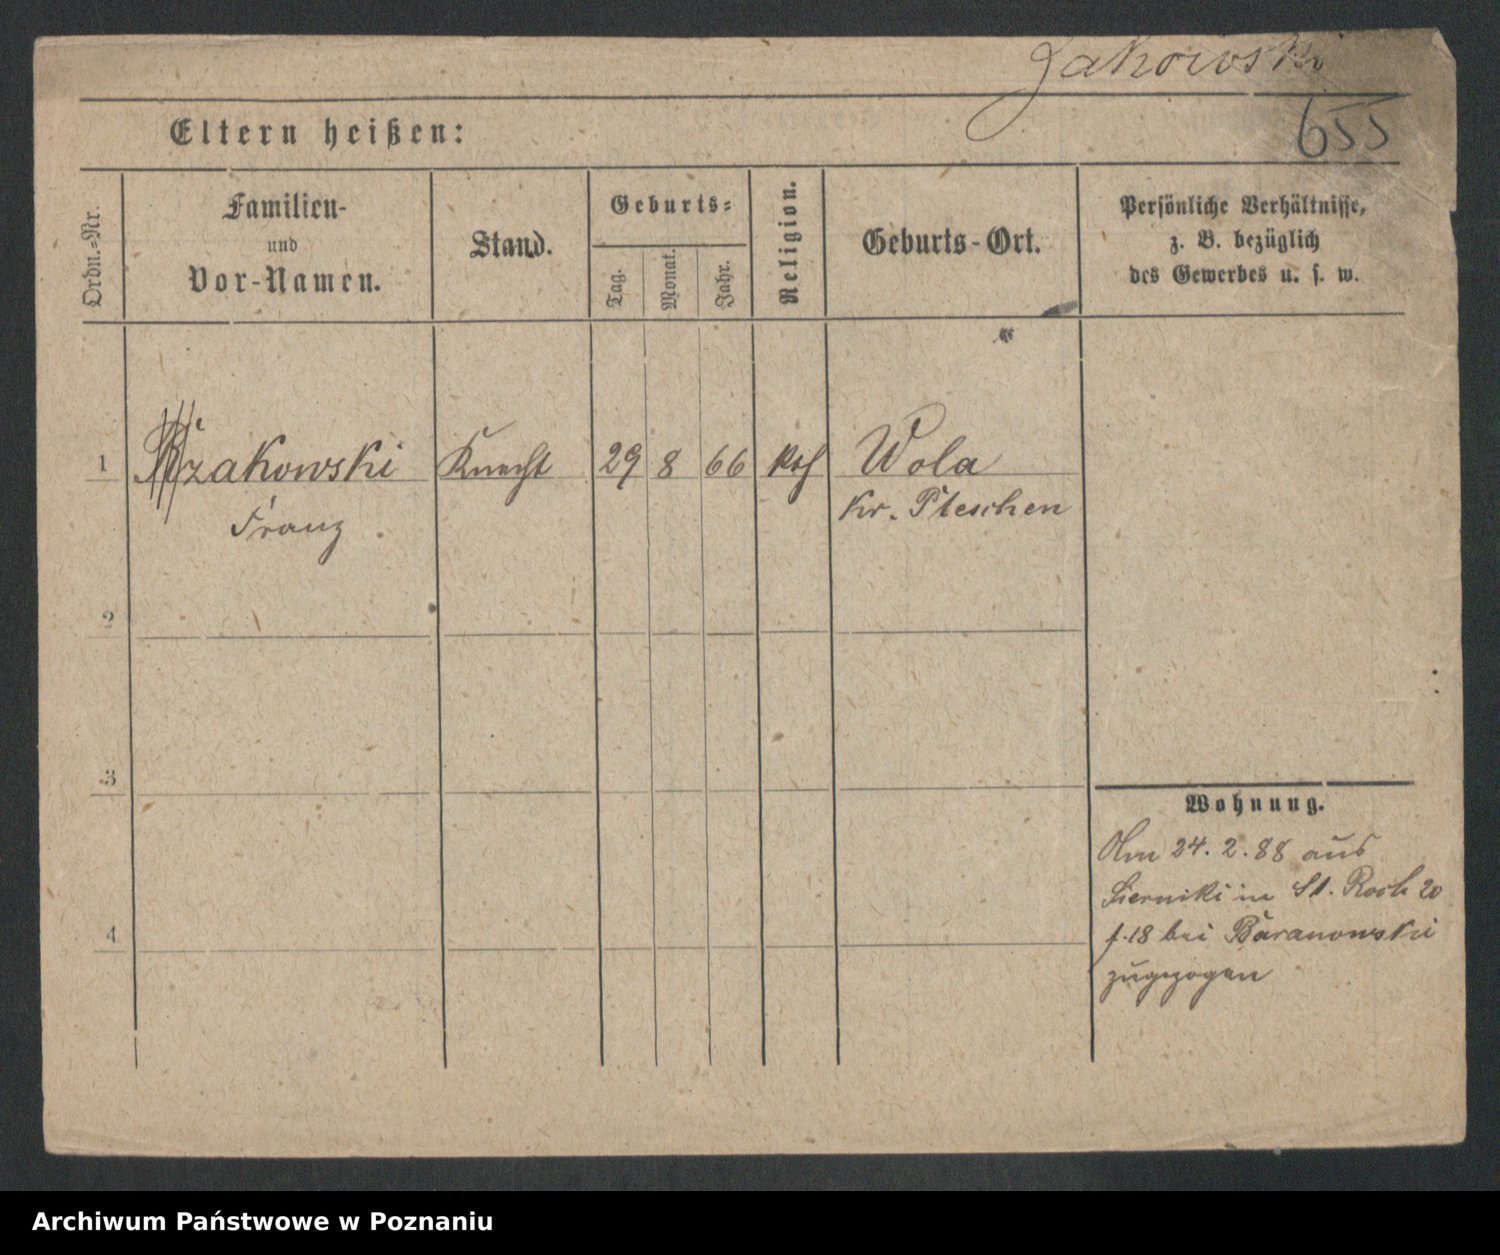 Zakowski
655
Eltern heißen:
Ordn.-Nr.
Familien-
und
Vor-Namen.
Stand.
Geburts-
Tag.
Monat.
Jahr.
Religion.
Geburts-Ort.
Persönliche Verhältnisse,
z. B. bezüglich
des Gewerbes u. s. w.
1 zakowski Knecht 29 8 66 Wola
Franz Kr. Pleschen
2
3
4
Wohnung.
Am 24. 2. 88 aus
Sierniki in St. Roch 20
f. 18 bei Baranowski
zugezogen
Archiwum Państwowe w Poznaniu